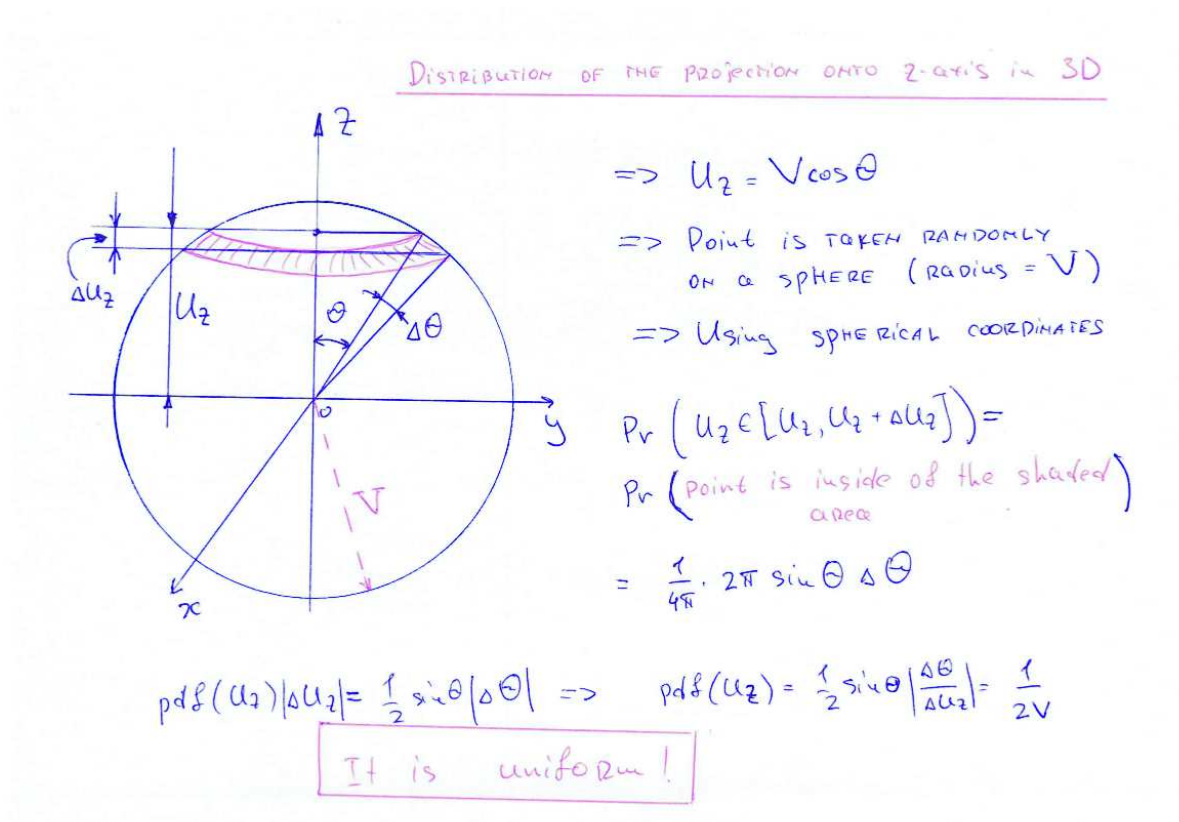 DISTRIBUTION OF THE PROJECTION ONTO Z-axis in 3D
Z
=> U_z = V cos θ
=> Point is TAKEN RANDOMLY
ON a SPHERE (RADIUS = V)
ΔU_z
U_z
θ
Δθ
=> Using SPHERICAL COORDINATES
0
y
Pr ( U_z ∈ [U_z, U_z + ΔU_z] ) =
V
Pr (point is inside of the shaded
area)
= 1/4π · 2π sin Θ Δ Θ
x
pdf(U_z)|ΔU_z| = 1/2 sin θ |Δθ| => pdf(U_z) = 1/2 sin θ |Δθ/ΔU_z| = 1/2V
It is uniform!